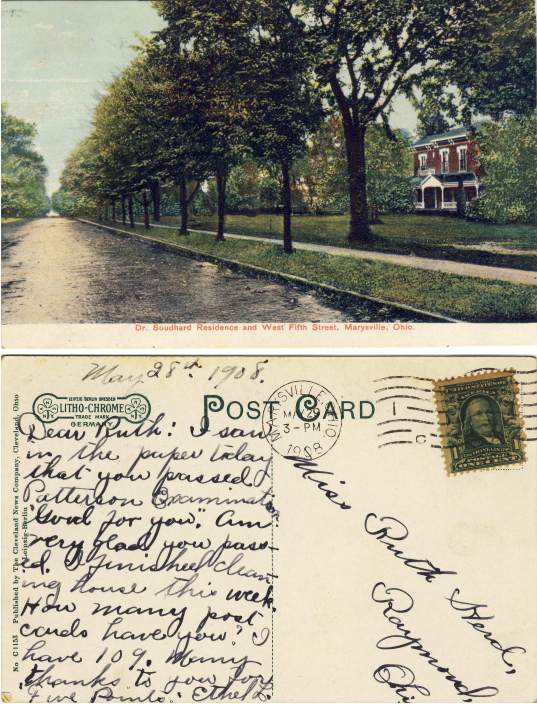 Dr. Soudhard Residence and West Fifth Street, Marysville, Ohio.
May 28th 1908.
LEIPZIG BERLIN DRESDEN
LITHO-CHROME
TRADE MARK
GERMANY
POST CARD
MARYSVILLE, OHIO
MAY 29
3-PM
1908
Dear Ruth: I saw
in the paper today
that you passed
Patterson Examination
"Good for you." Am
very glad you pass-
ed. I finished clean-
ing house this week.
How many post
cards have you? I
have 109. Many
thanks to you for
Five Points. Ethel L.
Miss Ruth Herd,
Raymond,
Ohio
No C1153 Published by The Cleveland News Company, Cleveland, Ohio
Leipzig-Berlin